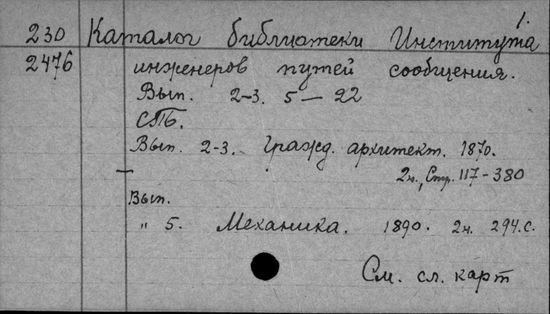 1.
230 Каталог библиотеки Института
2476 инженеров путей сообщения.
Вып. 2-3. 5 — 22
СПБ.
Вып. 2-3. Гражд. архитект. 1870.
2н., Стр. 117-380
Вып.
" 5. Механика. 1890. 2н. 294.с.
См. сл. карт